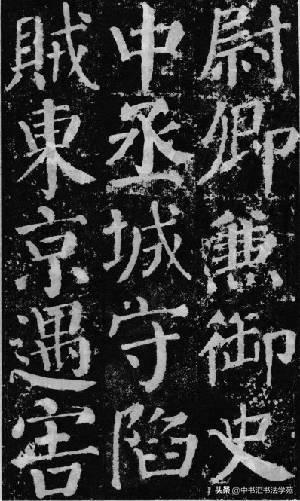 尉卿兼御史
中丞城守陷
賊東京遇害
头条 @中书汇书法学苑